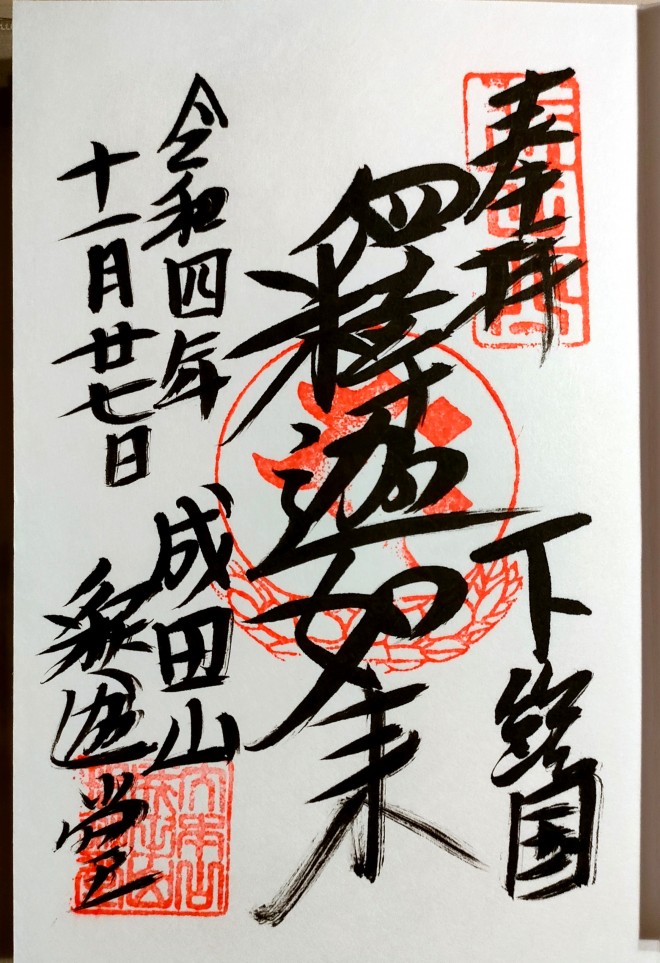 奉拝
下総国
釋迦如来
令和四年
十一月廿七日
成田山
釈迦堂